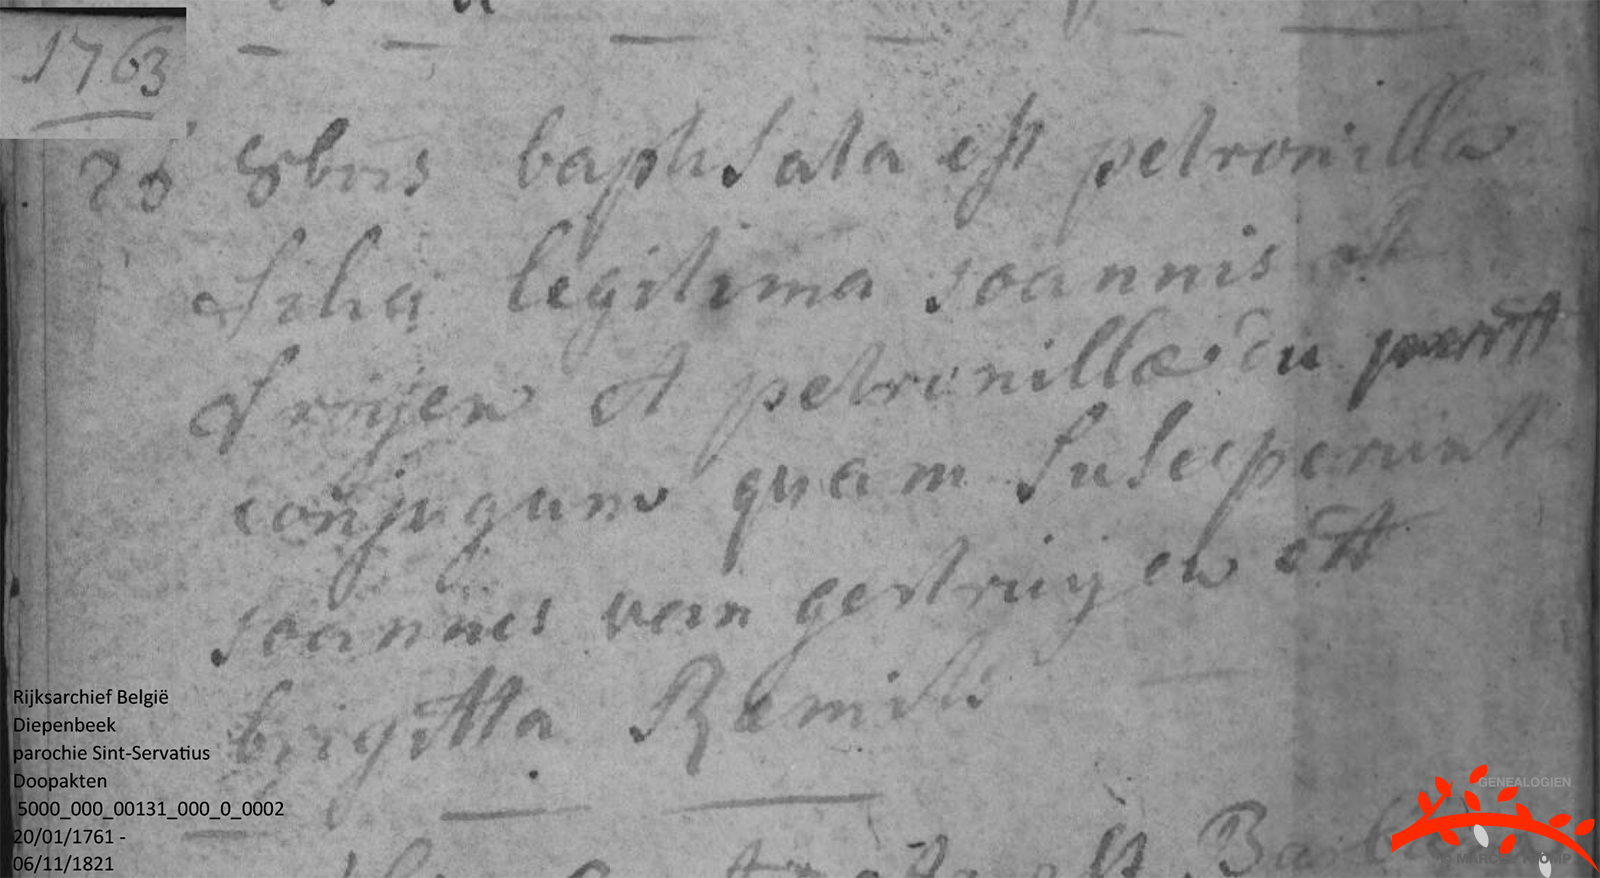 1763
26 8bris baptisata est petronilla
filia legitima joannis
vrijen et petronillæ du
conjugum quam susceperunt
joannes van gestruijen ett
brigitta Ræmists
Rijksarchief België
Diepenbeek
parochie Sint-Servatius
Doopakten
5000_000_00131_000_0_0002
20/01/1761 -
06/11/1821
GENEALOGIEN
MARCEL KROMP